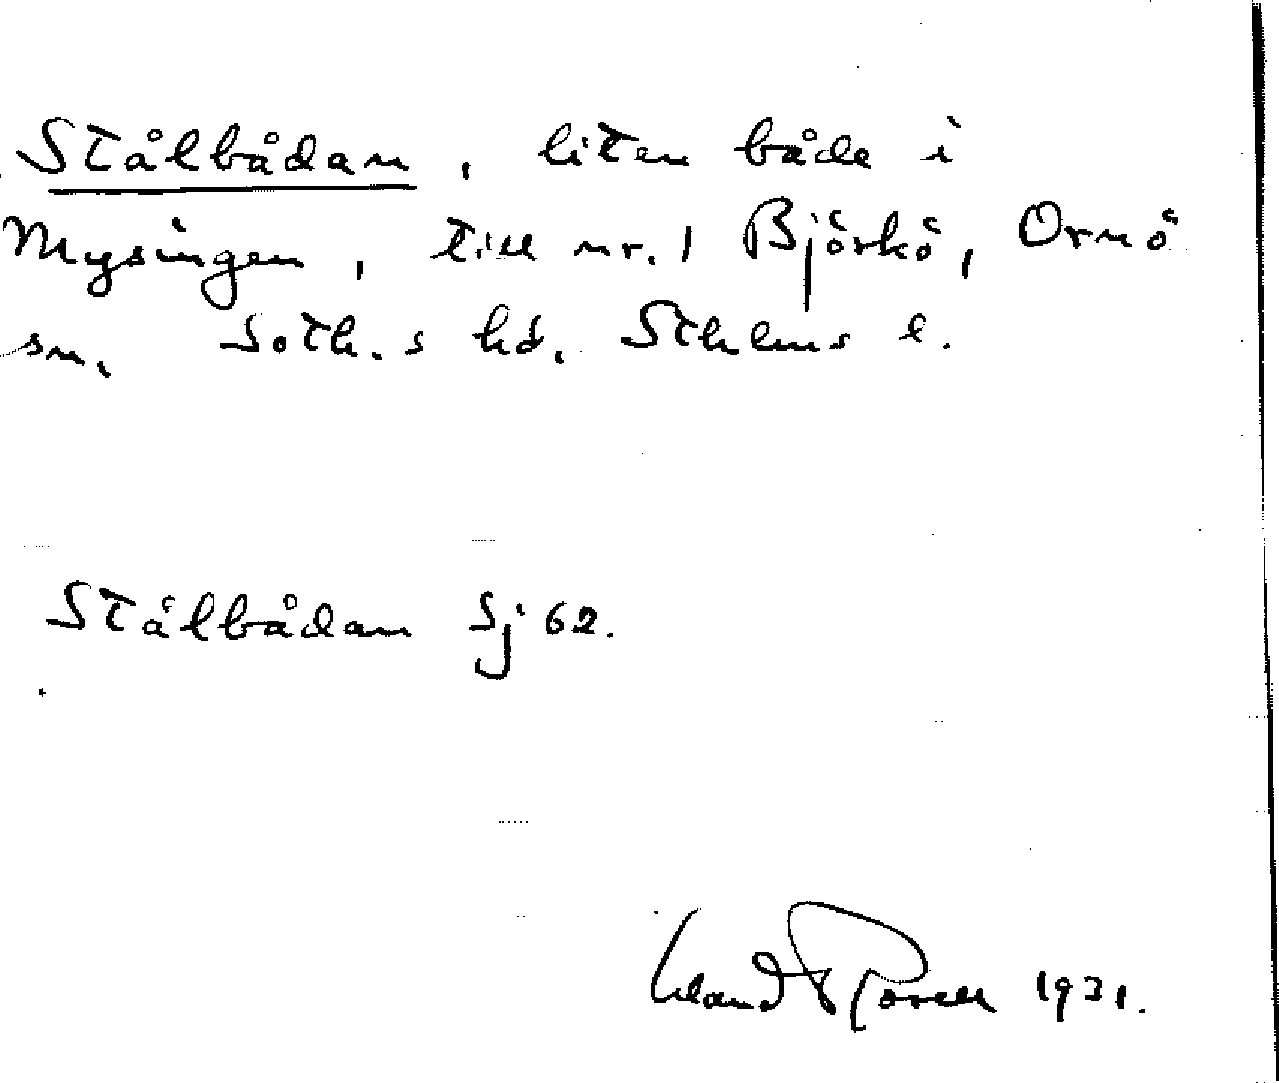 Stålbådan, liten både i
Mysingen, till nr. 1 Björkö, Ornö
sn. Soth.s hd. Sthlms l.
Stålbådan Sj 62.
1931.